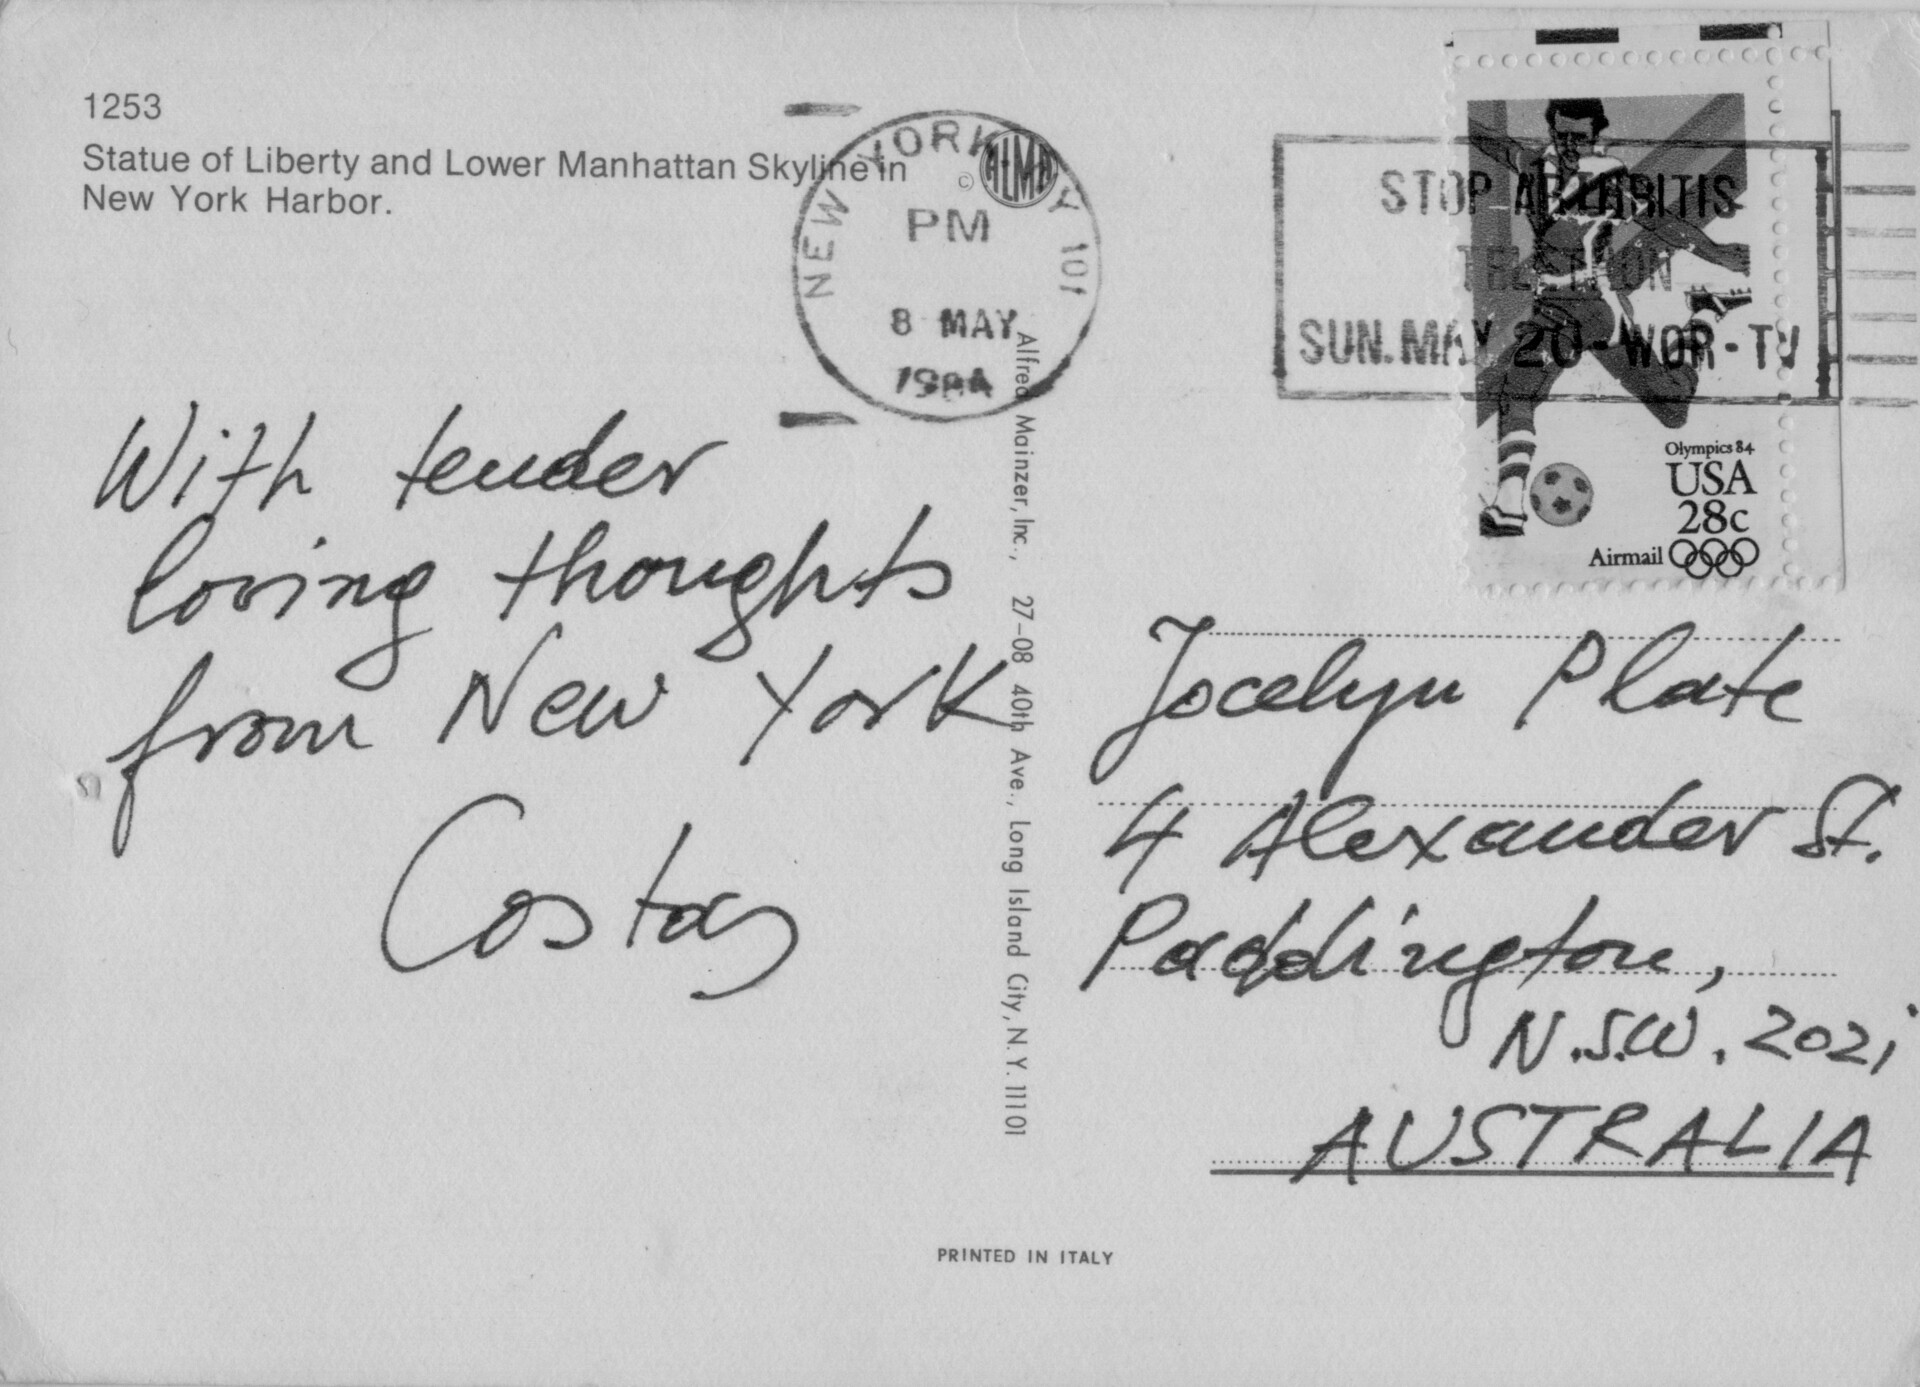 1253
Statue of Liberty and Lower Manhattan Skyline in
New York Harbor.
NEW YORK NY 101
PM
8 MAY
1984
© ALMA
STOP ARTHRITIS
TELETHON
SUN. MAY 20 - WOR - TV
Olympics 84
USA
28c
Airmail
With tender
loving thoughts
from New York
Costas
Alfred Mainzer, Inc., 27-08 40th Ave., Long Island City, N.Y. 11101
Jocelyn Plate
4 Alexander St.
Paddington,
N.S.W. 2021
AUSTRALIA
PRINTED IN ITALY